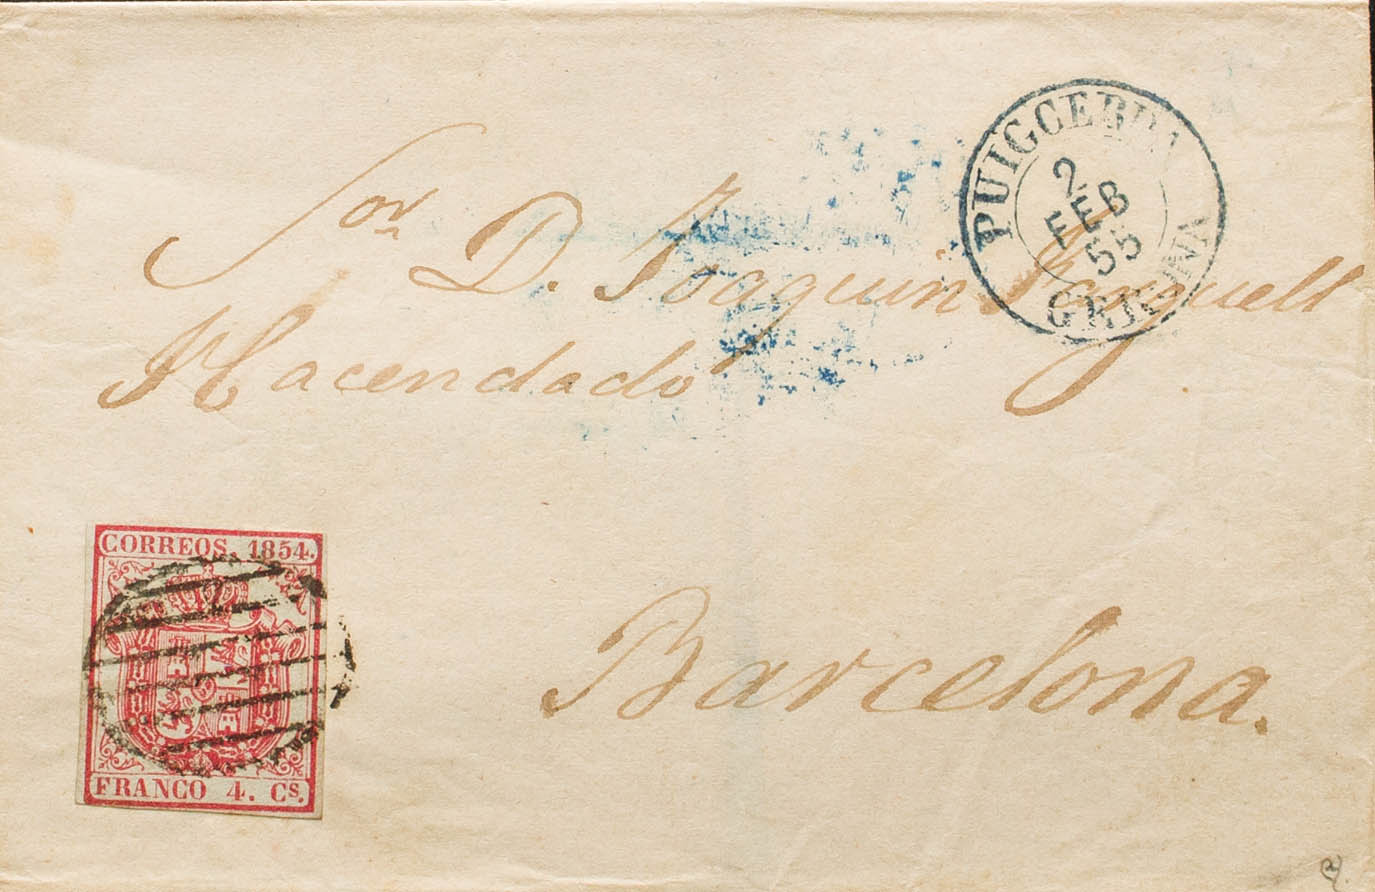 PUIGCERDA
2
FEB
55
GERONA
Sor. D. Joaquin
Hacendado
CORREOS. 1854.
FRANCO 4. Cs.
Barcelona.